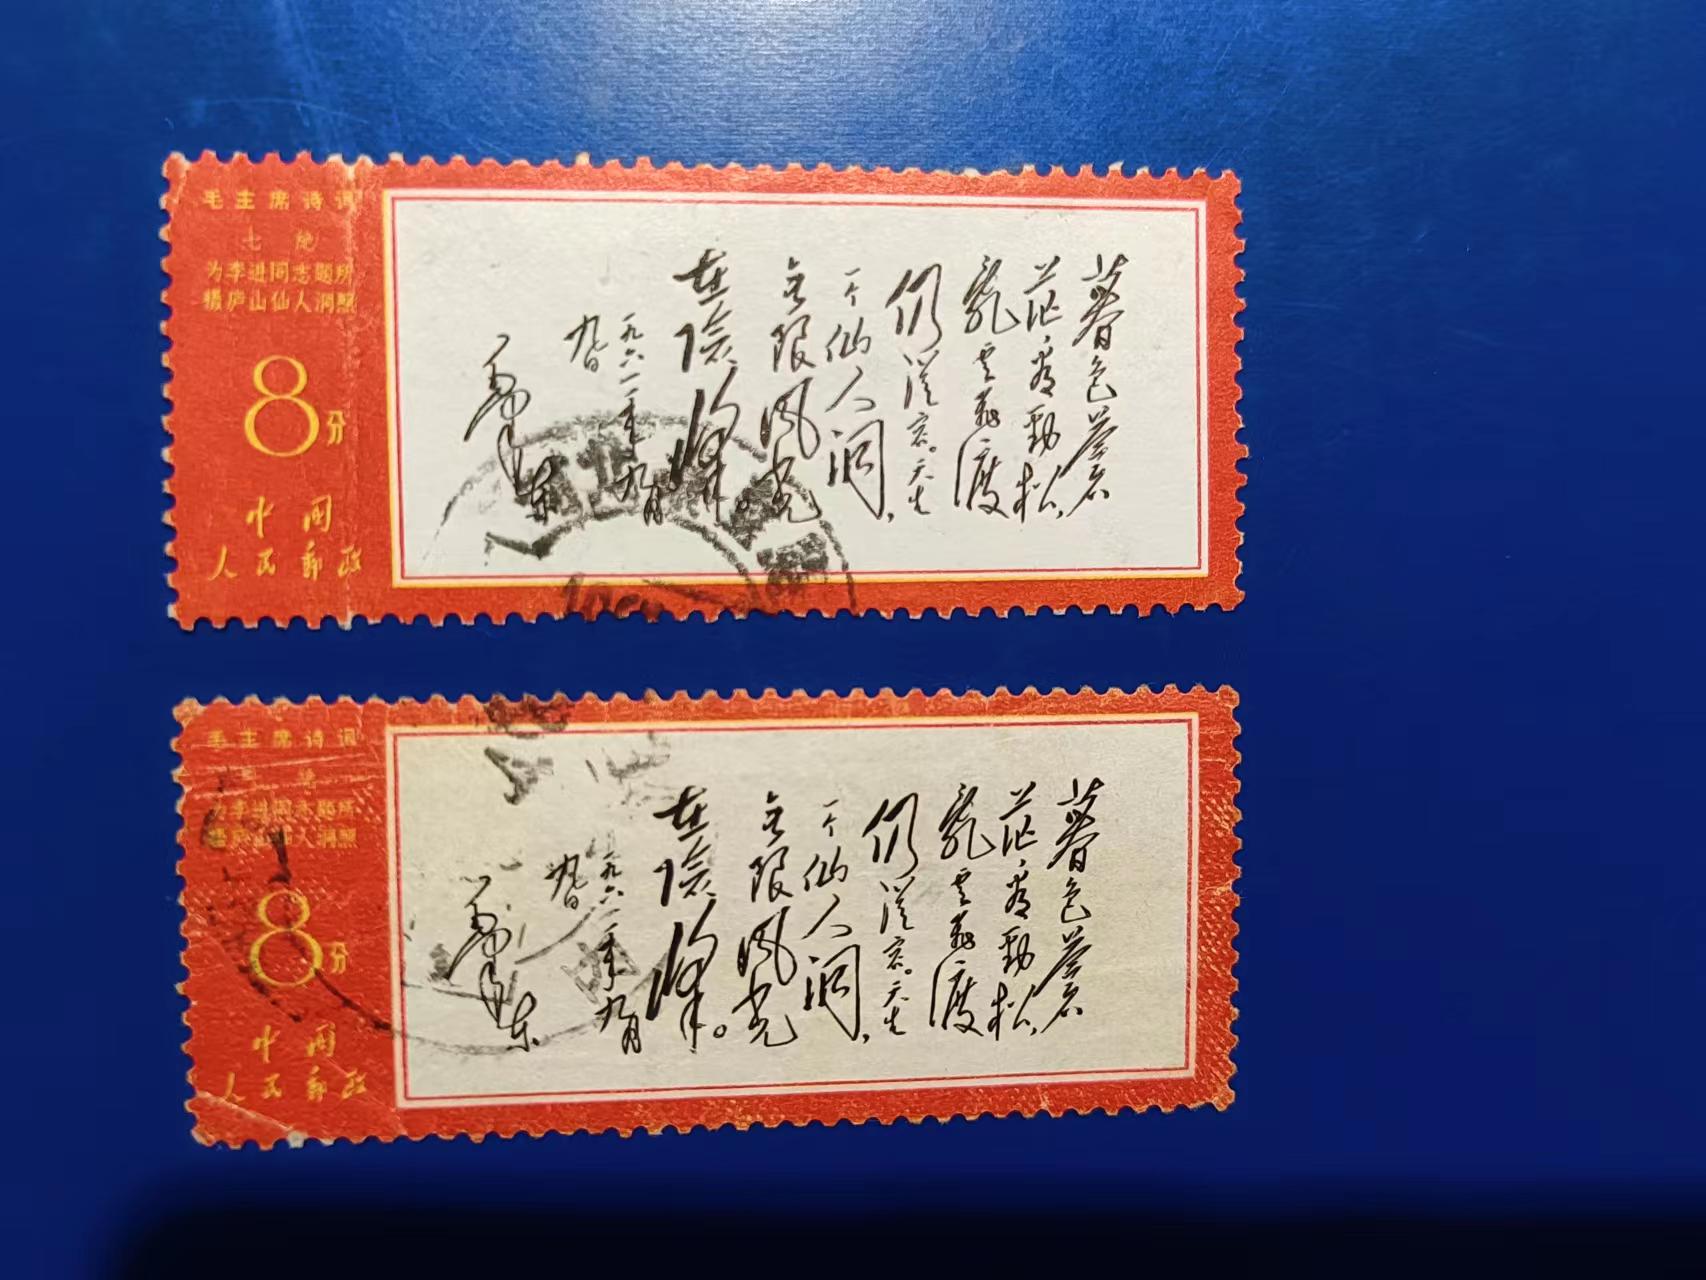 毛主席诗词
七绝
为李进同志题所
摄庐山仙人洞照
8分
中国
人民邮政
暮色苍
茫看劲松,
乱云飞渡
仍从容。天生
一个仙人洞,
无限风光
在险峰。
一九六一年九月
九日
毛泽东
毛主席诗词
七绝
为李进同志题所
摄庐山仙人洞照
8分
中国
人民邮政
暮色苍
茫看劲松,
乱云飞渡
仍从容。天生
一个仙人洞,
无限风光
在险峰。
一九六一年九月
九日
毛泽东